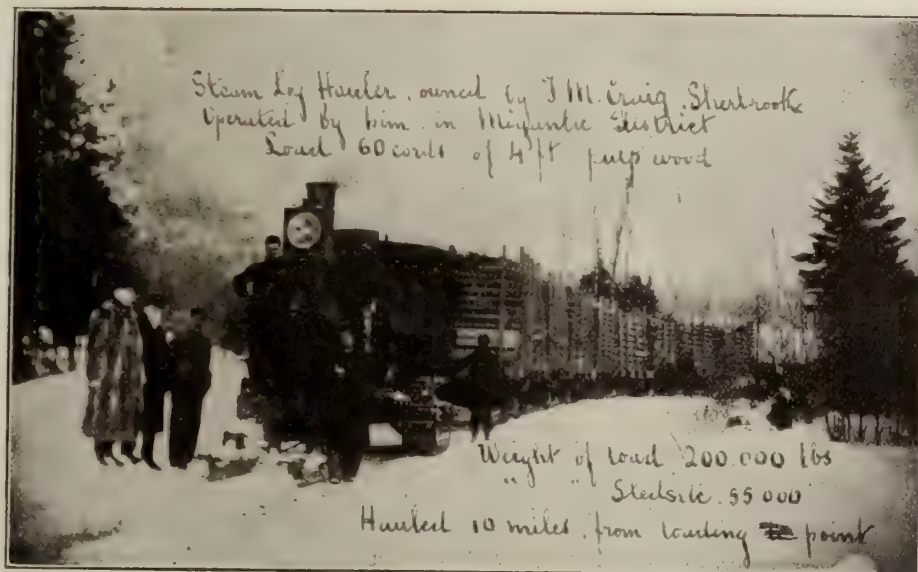 Steam Log Hauler, owned by T M. Craig, Sherbrooke
Operated by him in Megantic District
Load 60 cords of 4 ft pulp wood
Weight of load 200.000 lbs
" " 55 000
Hauled 10 miles, from loading point